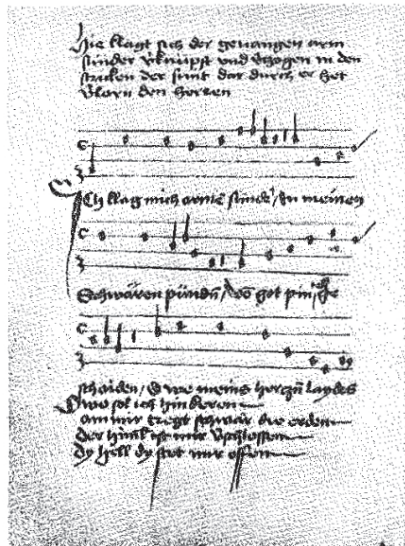 hie klagt sich der geuangen arm
sünder v'knüpft und v'zogen in den
stricken der sünt dar durch er het
v'lorn den herren
Ch klag mich arme sünd' / In meinen
Schwären pündn / das got pin ich
schaiden / O we meins herczn laydes
wo sol ich hin keren
am mir tregt schwär die erden
der himl ist mir v'schlossen
dy hell dy stet mir offen